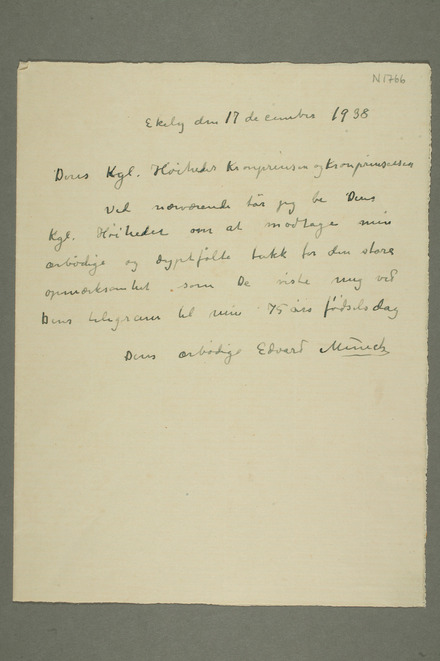 N 1766
Ekely den 17 december 1938
Deres Kgl. Høiheder Kronprinsen og Kronprinsessen
Ved nærværende tør jeg be Deres
Kgl. Høiheder om at modtage min
ærbødige og dyptfølte takk for den store
opmærksomhet som De viste mig ved
Deres telegram til min 75 års fødselsdag
Deres ærbødige Edvard Munch